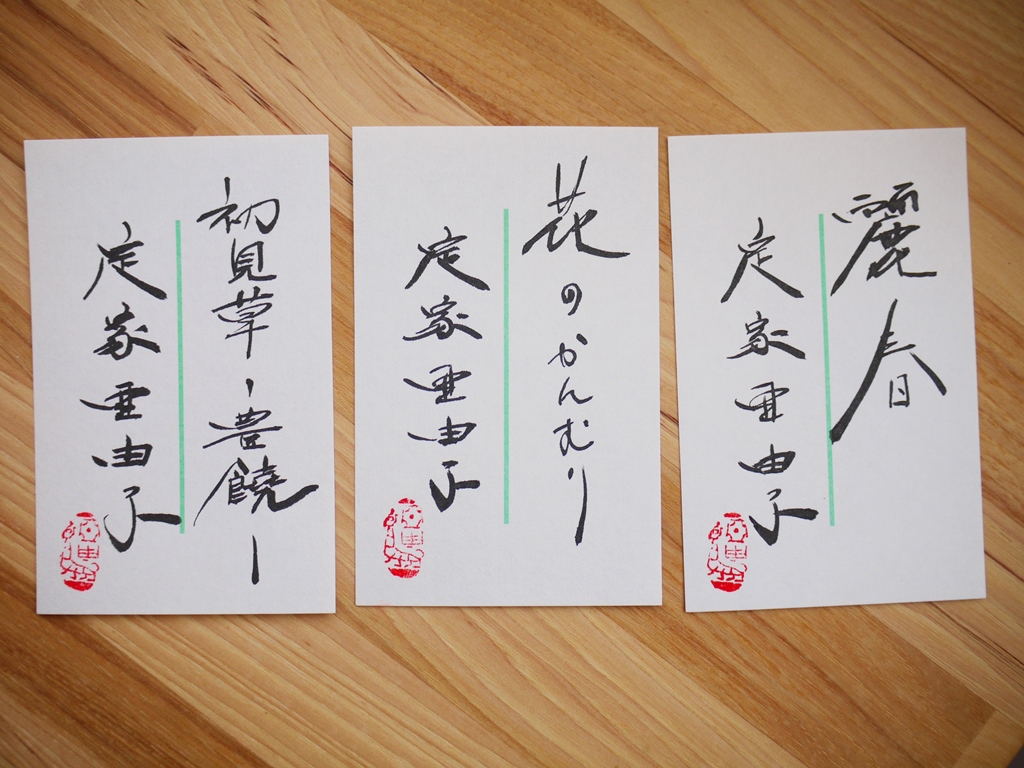 麗春
定家亜由子
花のかんむり
定家亜由子
初見草-豊饒-
定家亜由子